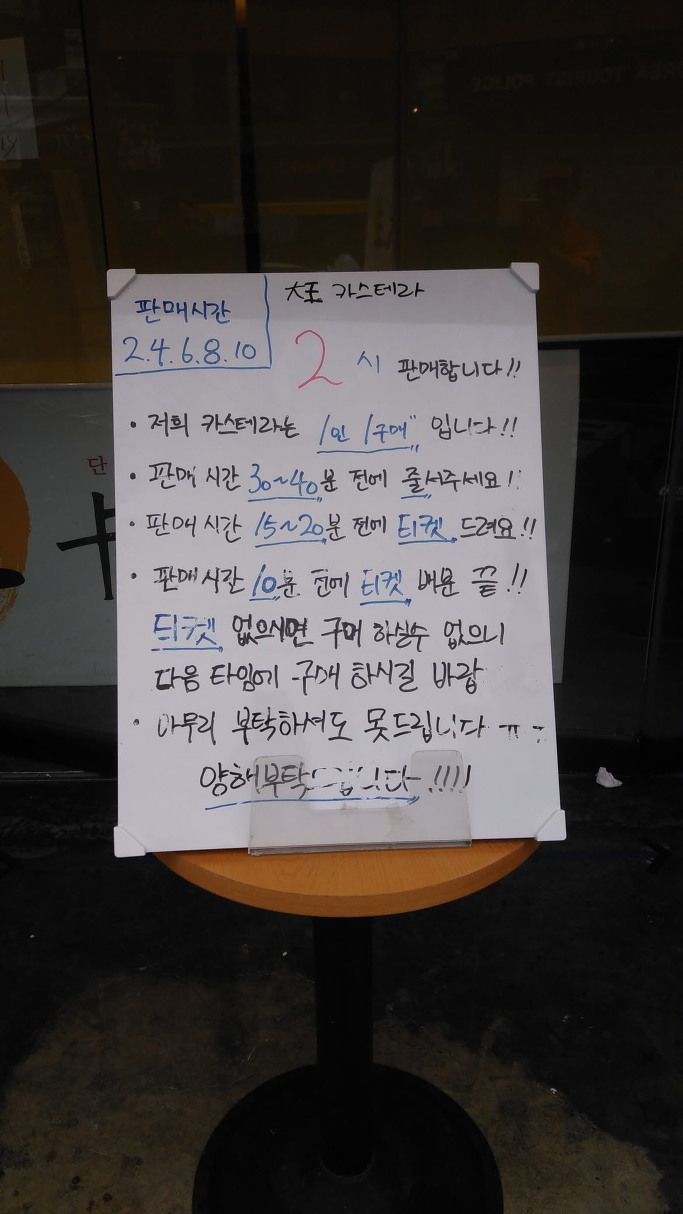 판매시간
2.4.6.8.10
大王 카스테라
2시 판매합니다!!
• 저희 카스테라는 1인 1구매" 입니다!!
• 판매시간 30~40분 전에 줄서주세요!!
• 판매시간 15~20분 전에 티켓 드려요!!
• 판매시간 10분 전에 티켓 배분 끝!!
티켓 없으시면 구매 하실수 없으니
다음 타임에 구매 하시길 바랍
• 아무리 부탁하셔도 못드립니다 ㅠㅠ
양해부탁드립니다!!!!
단
TOURIST POLICE